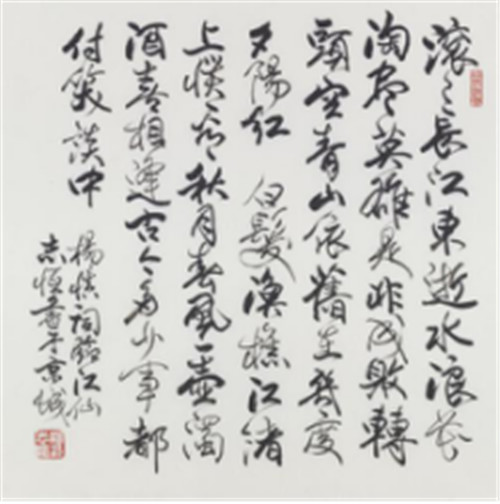 滚々長江東逝水浪花
淘盡英雄是非成敗轉
頭空青山依舊在幾度
夕陽紅 白髮漁樵江渚
上慣看秋月春風一壺濁
酒喜相逢古今多少事都
付笑談中
楊慎詞臨江仙
志恆書于京城